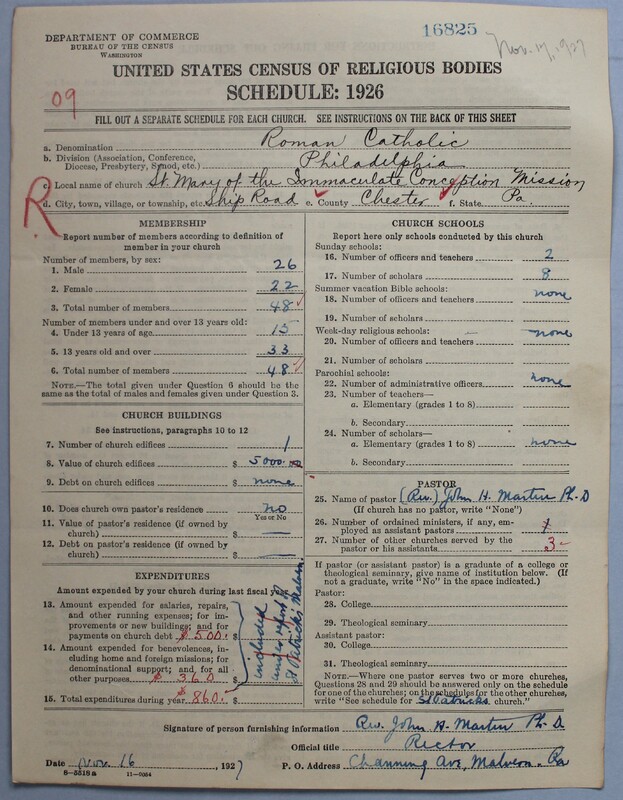 DEPARTMENT OF COMMERCE
BUREAU OF THE CENSUS
WASHINGTON
16825
Nov. 17, 1927
UNITED STATES CENSUS OF RELIGIOUS BODIES
SCHEDULE: 1926
09
FILL OUT A SEPARATE SCHEDULE FOR EACH CHURCH. SEE INSTRUCTIONS ON THE BACK OF THIS SHEET
a. Denomination Roman Catholic
b. Division (Association, Conference,
Diocese, Presbytery, Synod, etc.) Philadelphia
c. Local name of church St. Mary of the Immaculate Conception Mission
d. City, town, village, or township, etc. Ship Road e. County Chester f. State Pa.
R
MEMBERSHIP
Report number of members according to definition of
member in your church
Number of members, by sex:
1. Male 26
2. Female 22
3. Total number of members 48
Number of members under and over 13 years old:
4. Under 13 years of age 15
5. 13 years old and over 33
6. Total number of members 48
NOTE.—The total given under Question 6 should be the
same as the total of males and females given under Question 3.
CHURCH BUILDINGS
See instructions, paragraphs 10 to 12
7. Number of church edifices 1
8. Value of church edifices $ 5000.
9. Debt on church edifices $ none
10. Does church own pastor's residence no
Yes or No
11. Value of pastor's residence (if owned by
church) $ —
12. Debt on pastor's residence (if owned by
church) $ —
EXPENDITURES
Amount expended by church during last fiscal year
13. Amount expended for salaries, repairs,
and other running expenses; for im-
provements or new building; and for
payments on church debt $500.
14. Amount expended for benevolences, in-
cluding home and foreign missions; for
denominational support; and for all
other purposes $ 360
15. Total expenditures during year $ 860.
included
under report of
St Patrick's Malvern.
CHURCH SCHOOLS
Report here only schools conducted by this church
Sunday schools:
16. Number of officers and teachers 2
17. Number of scholars 8
Summer vacation Bible schools:
18. Number of officers and teachers none
19. Number of scholars
Week-day religious schools: — none
20. Number of officers and teachers
21. Number of scholars
Parochial schools:
22. Number of administrative officers none
23. Number of teachers—
a. Elementary (grades 1 to 8)
b. Secondary
24. Number of scholars—
a. Elementary (grades 1 to 8) none
b. Secondary
PASTOR
25. Name of pastor (Rev.) John H. Martin Ph. D
(If church has no pastor, write "None")
26. Number of ordained ministers, if any, em-
ployed as assistant pastors 1
27. Number of other churches served by the
pastor or his assistants 3-
If pastor (or assistant pastor) is a graduate of a college or
theological seminary, give name of institution below. (If
not a graduate, write "No" in the space indicated.)
Pastor:
28. College
29. Theological seminary
Assistant pastor:
30. College
31. Theological seminary
NOTE.—Where one pastor serves two or more churches,
Questions 28 and 29 should be answered only on the schedule
for one of the churches; on the schedules for the other churches,
write "See schedule for St Patricks church."
Signature of person furnishing information Rev. John H. Martin Ph. D.
Official title Rector
Date Nov. 16, 1927 P. O. Address Channing Ave, Malvern. Pa
8-5518a 11-9054